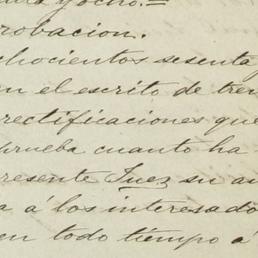 y ocho.=
robacion.
chocientos sesenta
en el escrito de trei
rectificaciones que
prueba cuanto ha
resente Juez su au
a á los interesado
en todo tiempo á